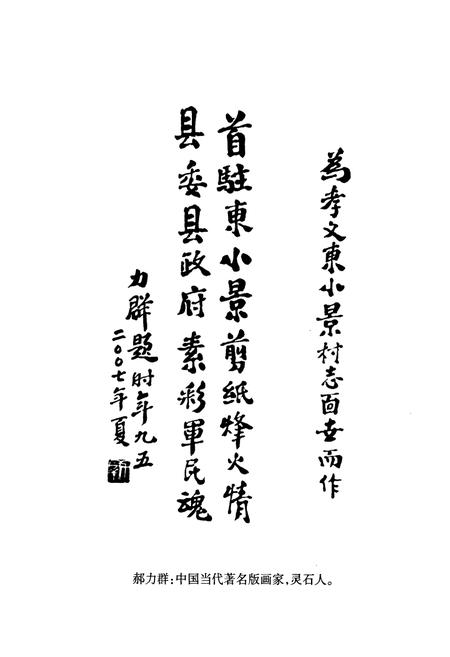 為孝文東小景村志面世而作
首駐東小景剪紙烽火情
县委县政府素彩軍民魂
力群题时年九五
二〇〇七年夏
郝力群:中国当代著名版画家,灵石人。